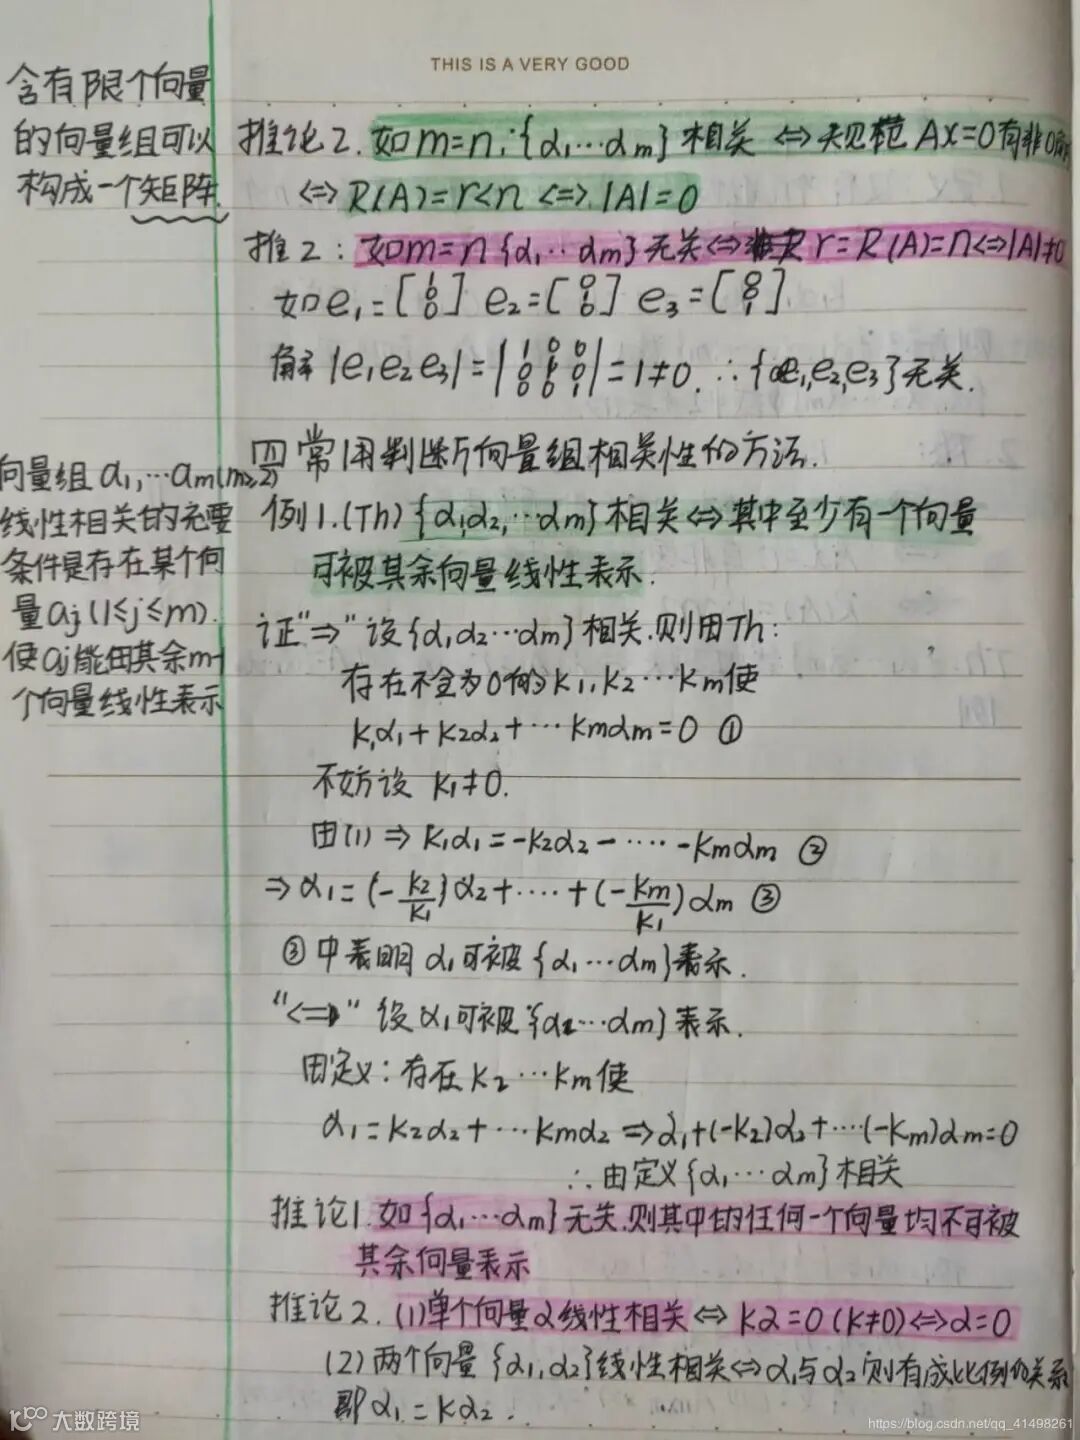 THIS IS A VERY GOOD
含有限个向量
的向量组可以
构成一个矩阵
推论2. 如m=n, {α₁…αm} 相关 ⇔ AX=0有非0解
⇔ R(A)=r<n ⇔ |A|=0
推2: 如m=n {α₁…αm} 无关⇔ r=R(A)=n⇔|A|≠0
如e₁=[1 0 0] e₂=[0 1 0] e₃=[0 0 1]
解 |e₁e₂e₃|=|1 0 0 0 1 0 0 0 1|=1≠0. ∴{e₁,e₂,e₃}无关.
四 常用判断向量组相关性的方法.
向量组 a₁,…am(m≥2)
线性相关的充要
条件是存在某个向
量aj (1≤j≤m).
使aj能由其余m-1
个向量线性表示
例1.(Th) {α₁α₂,…αm}相关⇔其中至少有一个向量
可被其余向量线性表示.
证"⇒"设{α₁α₂…αm}相关.则由Th:
存在不全为0的k₁,k₂…km使
k₁α₁+k₂α₂+…kmαm=0 ①
不妨设 k₁≠0.
由(1)⇒ k₁α₁=-k₂α₂-……-kmαm ②
⇒α₁=(-k₂/k₁)α₂+……+(-km/k₁)αm ③
③中表明α₁可被{α₁…αm}表示.
"⇐" 设α₁可被{α₂…αm}表示.
由定义:存在k₂…km使
α₁=k₂α₂+…kmα₂⇒α₁+(-k₂)α₂+…(-km)αm=0
∴由定义{α₁…αm}相关
推论1.如{α₁…αm}无关.则其中的任何一个向量均不可被
其余向量表示
推论2. (1)单个向量α线性相关⇔kα=0(k≠0)⇔α=0
(2)两个向量{α₁,α₂}线性相关⇔α₁与α₂则有成比例的关系
即α₁=kα₂.
大数跨境
https://blog.csdn.net/qq_41498261